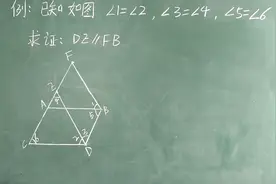 例: 已知如图 ∠1=∠2, ∠3=∠4, ∠5=∠6
求证: DE∥FB
F
E
A
B
5
C
6
D
2
3